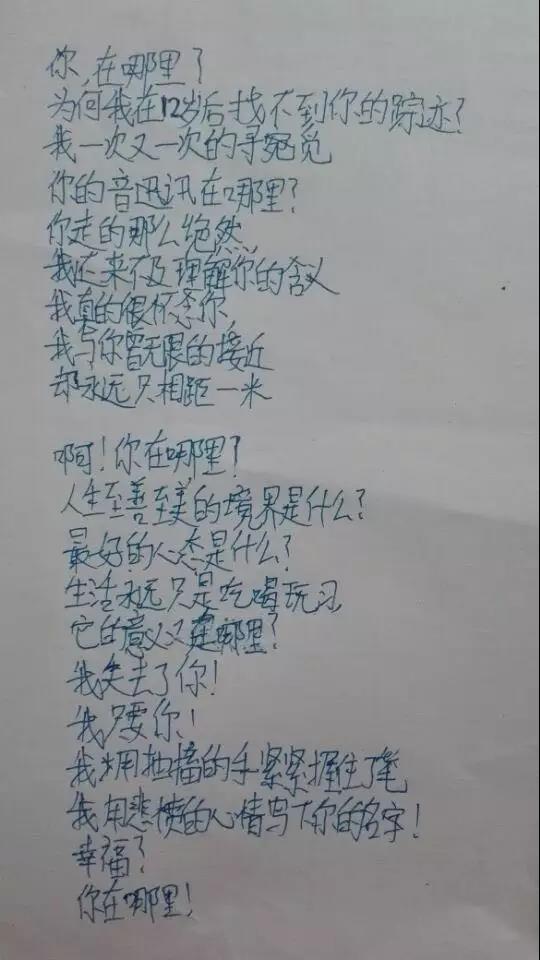 你,在哪里?
为何我在12岁后找不到你的踪迹?
我一次又一次的寻觅
你的音迅讯在哪里?
你走的那么绝然,
我还来不及理解你的含义
我真的很怀念你,
我与你曾无限的接近
却永远只相距一米
啊!你在哪里?
人生至善至美的境界是什么?
最好的心态是什么?
生活永远只是吃喝玩习,
它的意义又是哪里?
我失去了你!
我只要你!
我用抽搐的手紧紧握住了笔
我用悲愤的心情写下你的名字!
幸福?
你在哪里!